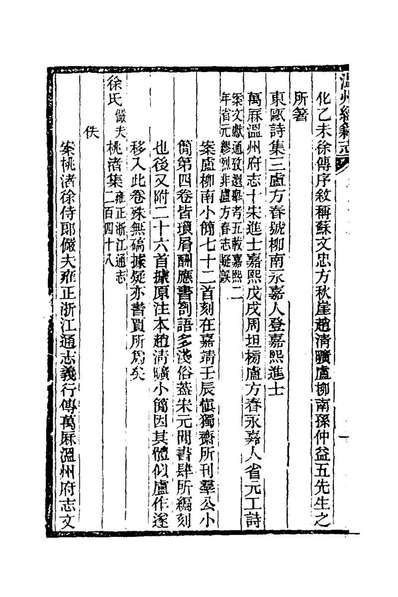 溫州經籍志
化乙未徐傳序敘稱蘇文忠方秋崖趙清曠盧柳南孫仲益五先生之
所著
東甌詩集三盧方春號柳南永嘉人登嘉熙進士
萬厤溫州府志十宋進士嘉熙戊戌周坦榜盧方春永嘉人省元工詩
案文獻通攷選舉考五載嘉熙二
年省元繆烈非盧方春志疑誤
案盧柳南小簡七十二首刻在嘉靖壬辰愼獨齋所刊羣公小
簡第四卷皆瑣屑酬應書劄語多淺俗蓋宋元間書肆所編刻
也後又附二十六首據原注本趙清曠小簡因其體似盧作遂
移入此卷殊無碻據疑亦書賈所爲矣
徐氏儼夫桃渚集二百四十八
雍正浙江通志
佚
案桃渚徐侍郎儼夫雍正浙江通志義行傳萬厤溫州府志文